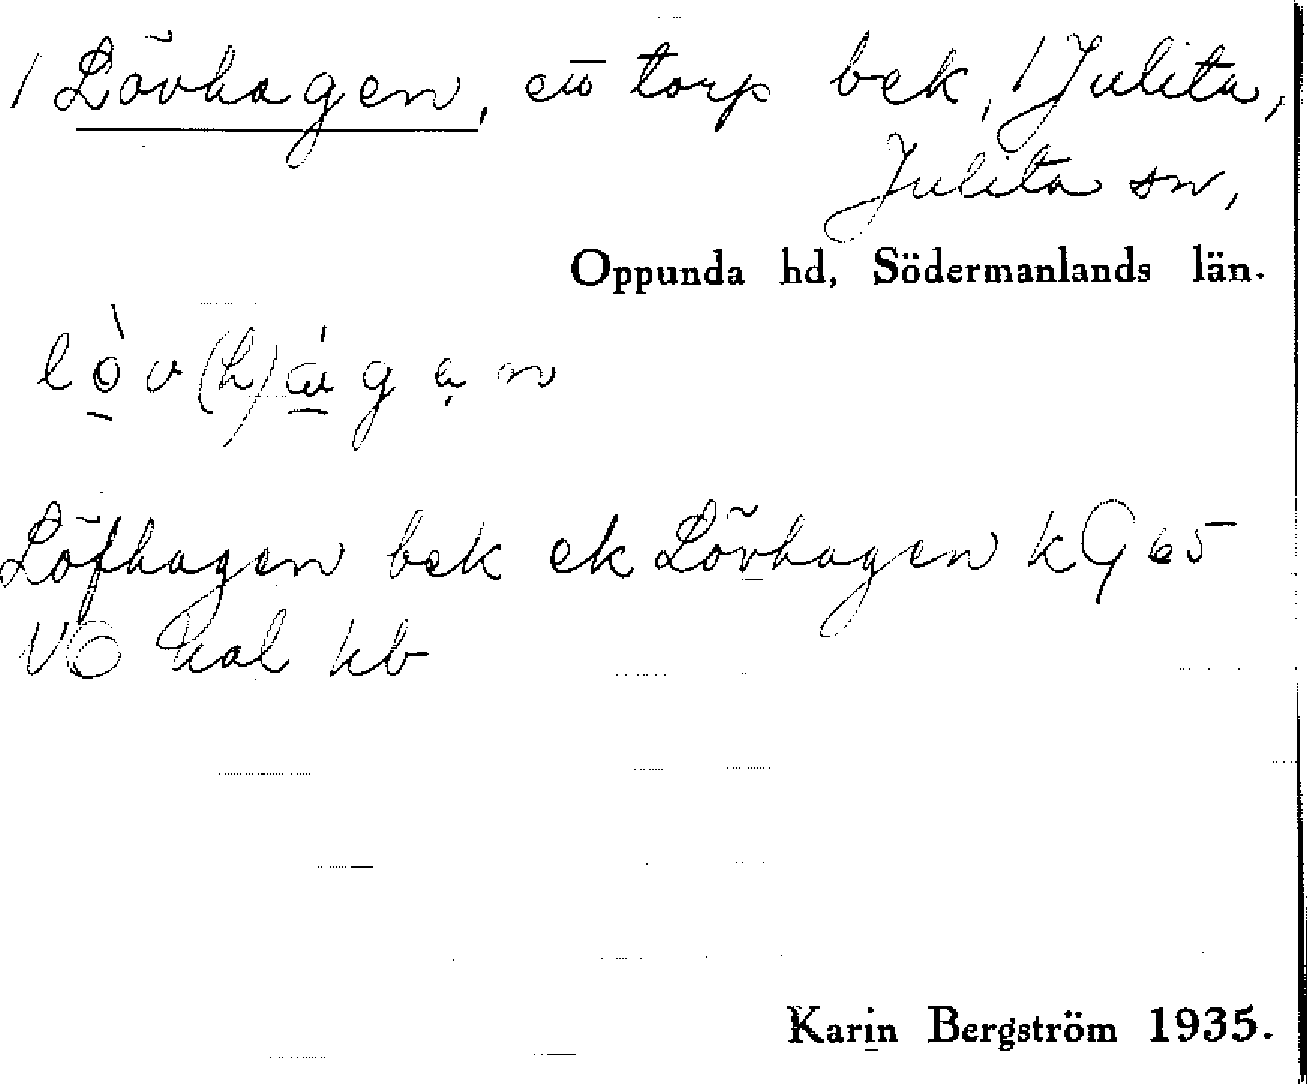 / Lövhagen, ett torp bek, / Julita,
Julita sn,
Oppunda hd, Södermanlands län.
lòv(h)ágạn
Löfhagen bek ek Lövhagen kG 65
VÖ kal kb
Karin Bergström 1935.